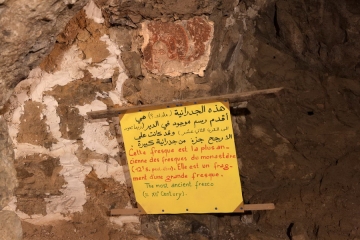 هذه الجدرانية هي
أقدم رسم موجود في الدير
وقد كانت على
الأرجح جزء من جدرانية كبيرة
Cette fresque est la plus an-
cienne des fresques du monastère
Elle est un frag-
ment d'une grande fresque.
The most ancient fresco
Century).